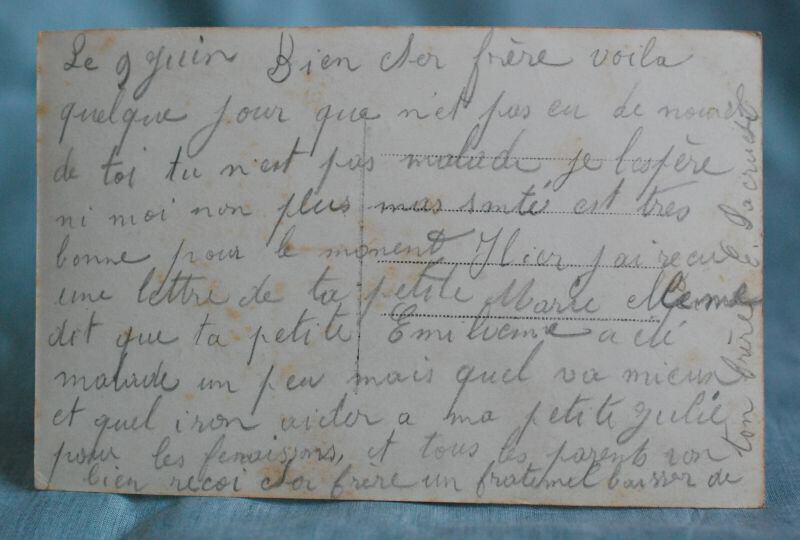 Le 9 juin Bien cher frère voila
quelque jour que n'et pas eu de nouvel
de toi tu n'est pas malade je l'espère
ni moi non plus mas snté est tres
bonne pour le moment Hier j'ai recu
une lettre de ta petite Marie
dit que ta petite Emilienne a eté
malade un peu mais quel va mieux
et quel iron aider a ma petite Julie
pour les fenaisons, et tous les parents von
bien recoi cher frère un fraternel baisser de
ton frère E.